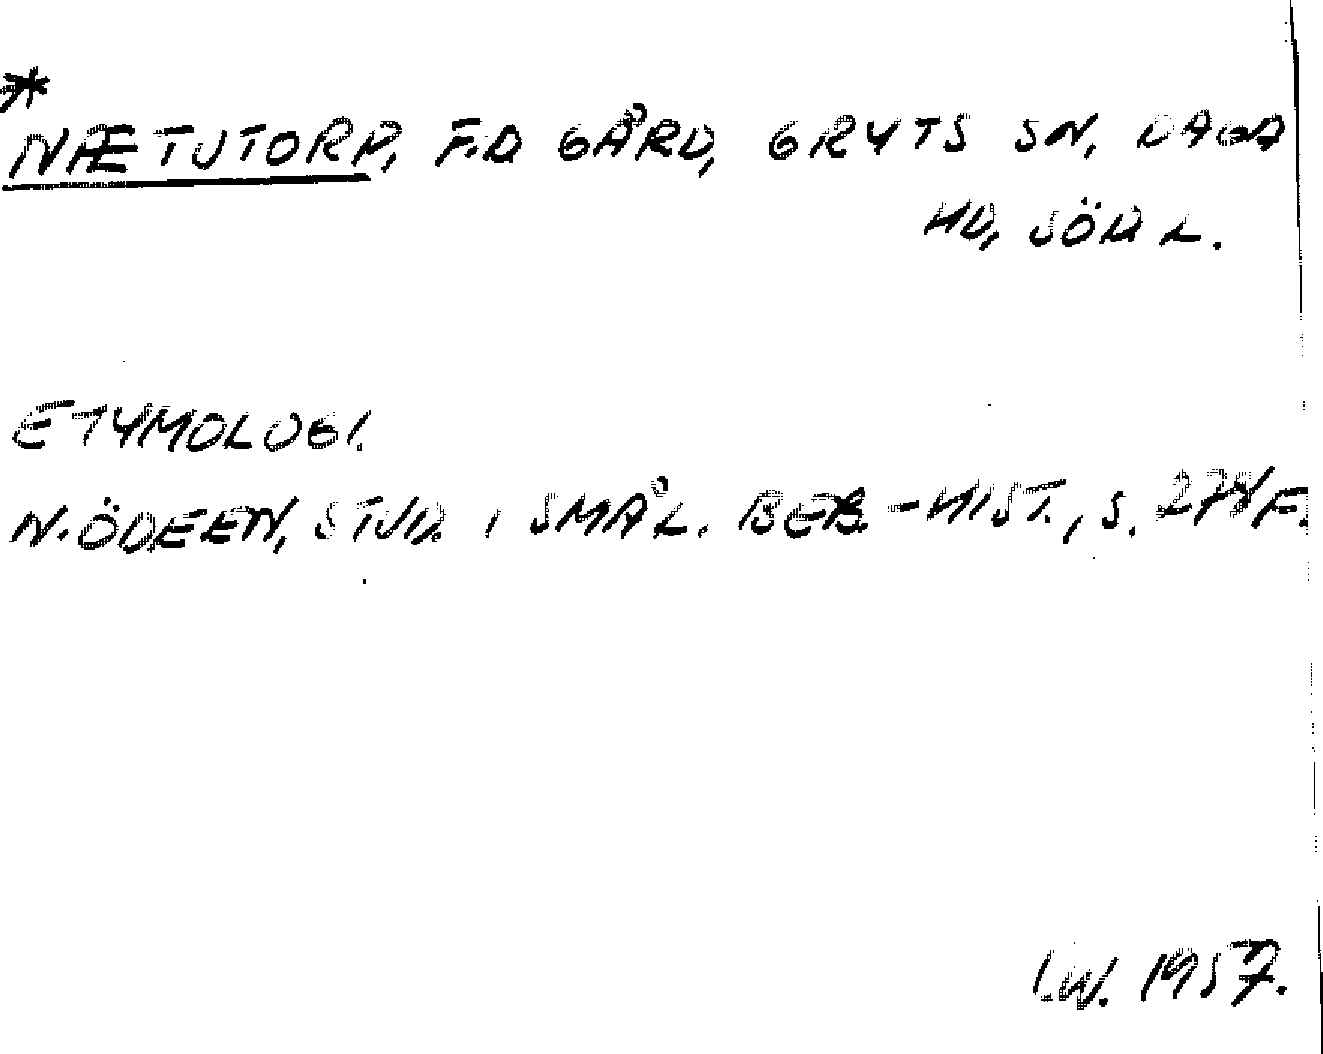 *
NÆTUTORP, F.D GÅRD, GRYTS SN, DAGA
HD, SÖDL.
ETYMOLOGI.
N. ÖDEEN, STUD. I SMÅL. BEB.-HIST., S. 278 F.
I.W. 1957.